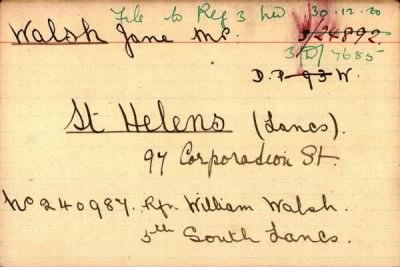 File to Reg 3 30.12.20
Walsh Jane Mrs. 3/24892.
3/D/7685
D.P. 93 W.
St Helens (Lancs).
97 Corporation St.
No 240987. Rfn William Walsh.
5th South Lancs.